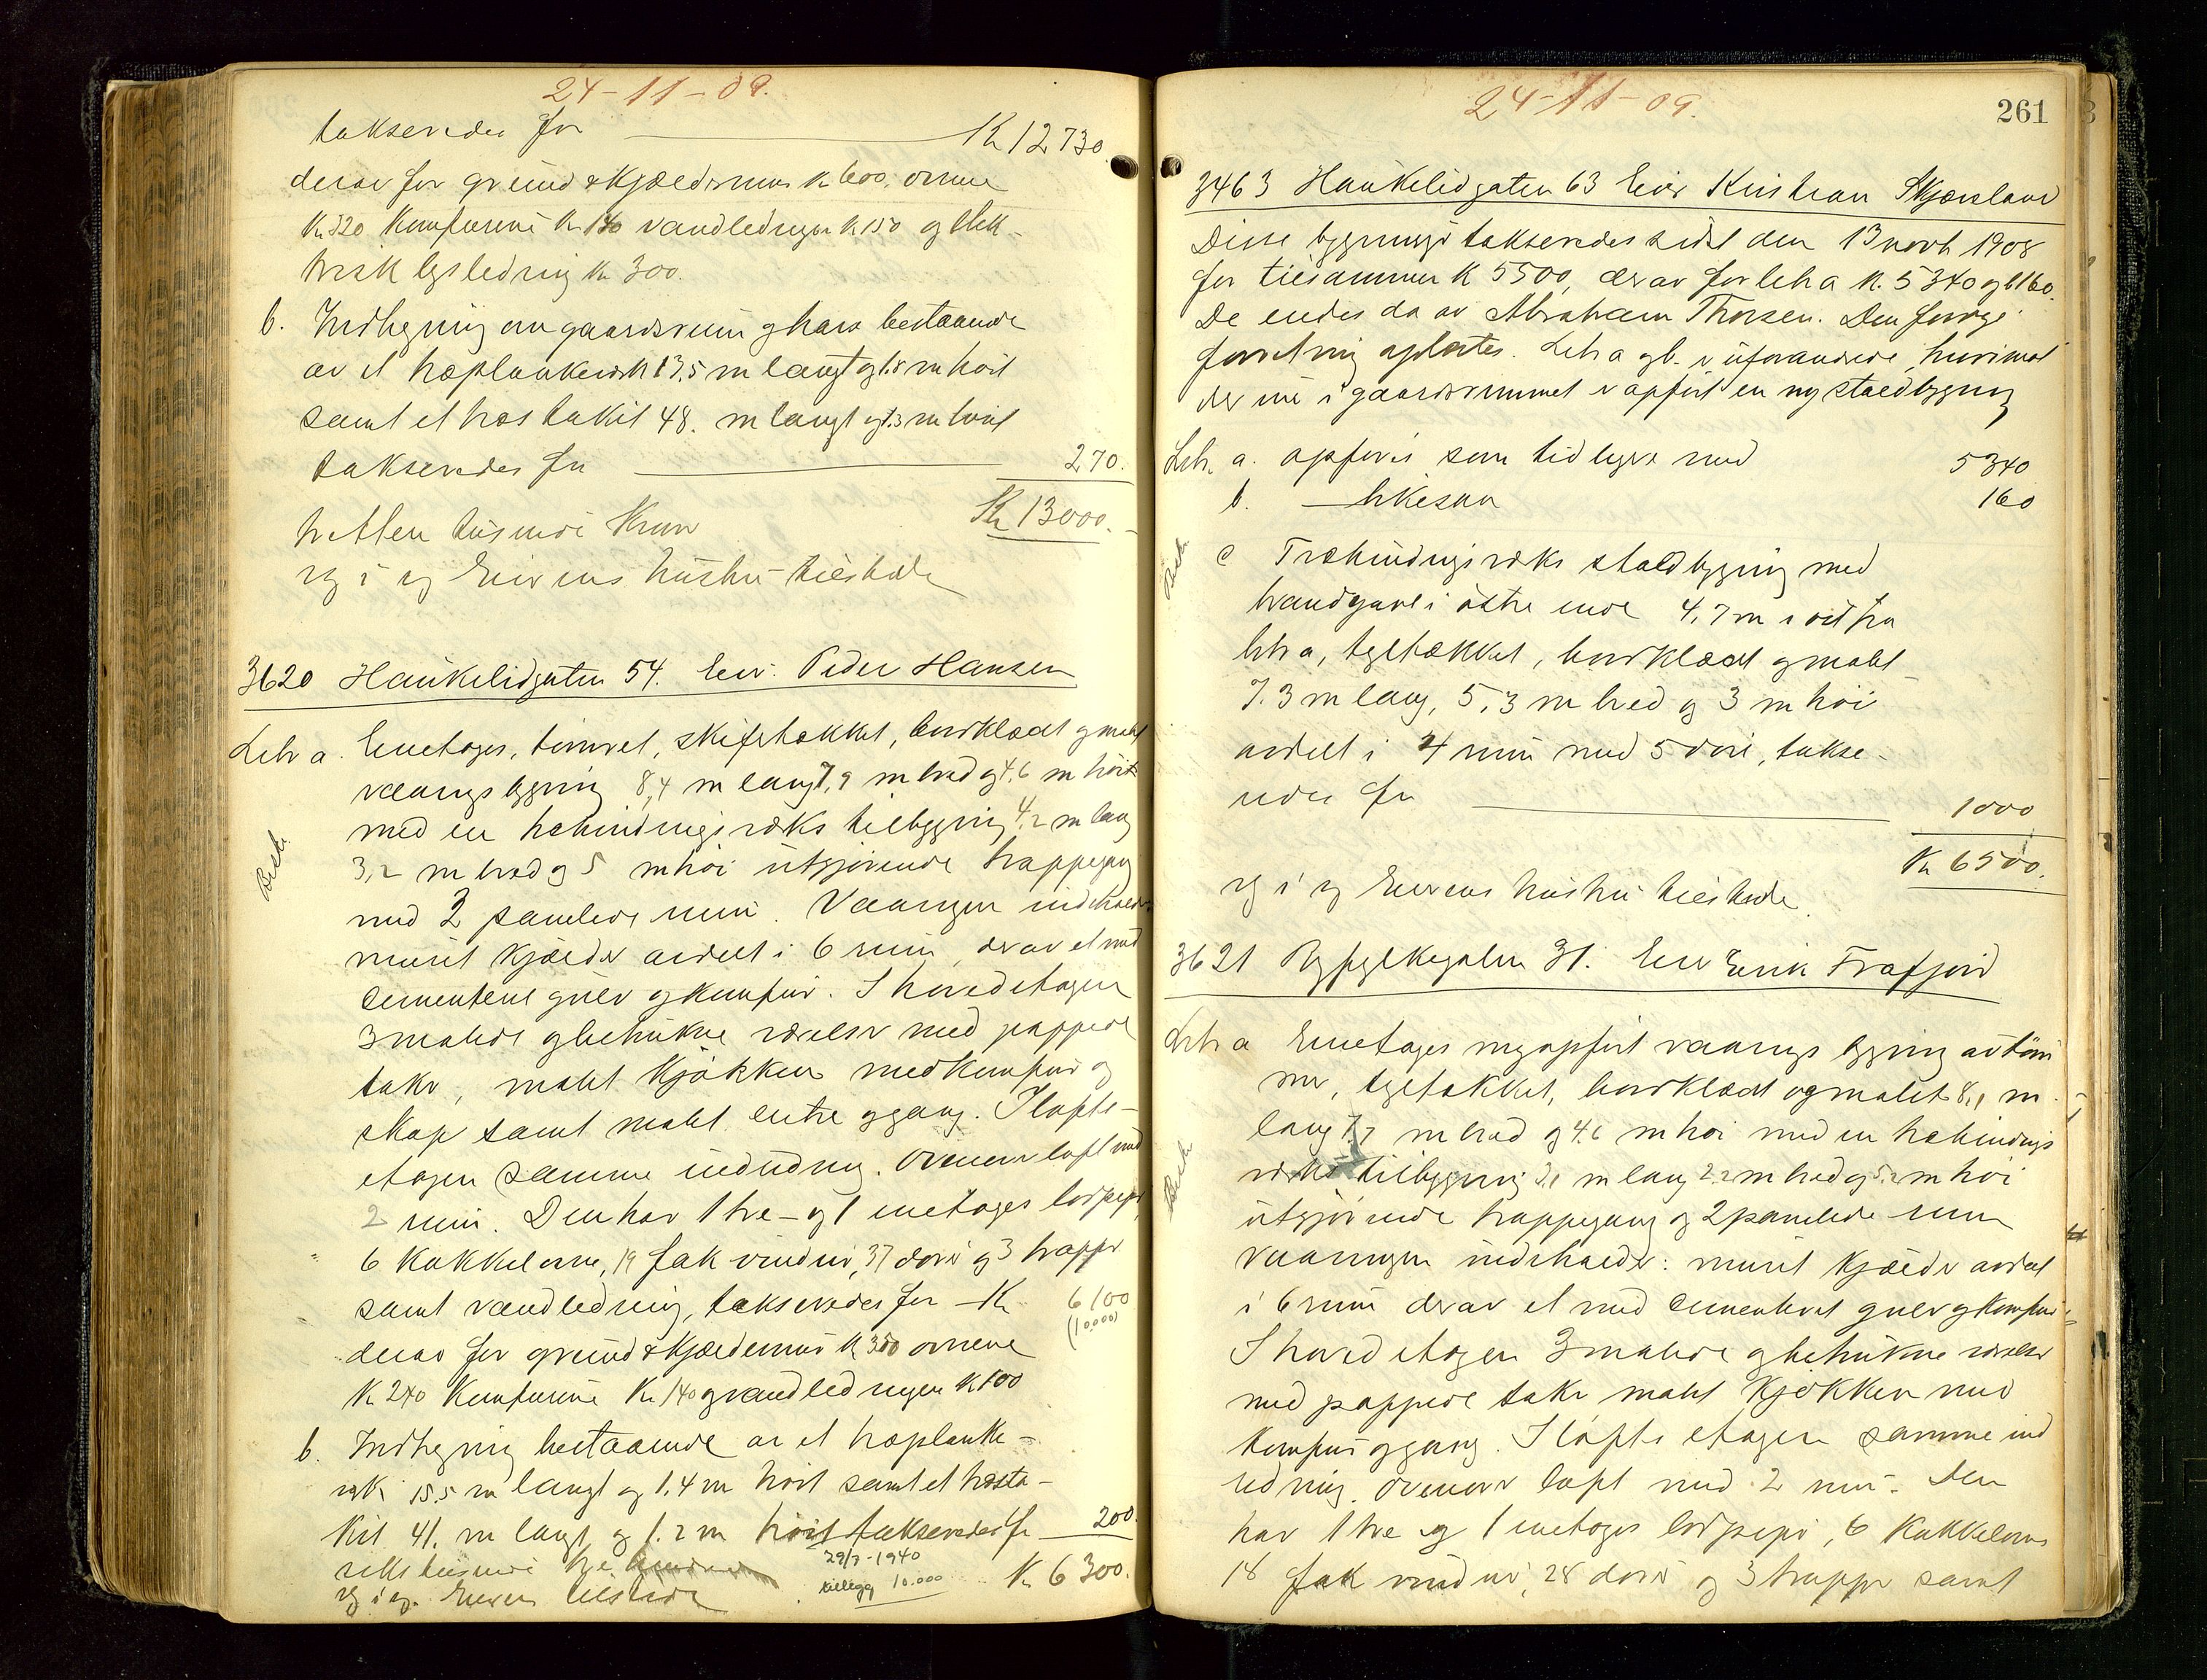 24-11-09.
takseredes for Kr 12730.
derav for grund & kjældermur k 600. ovnene
Kr 320 Komfurene Kr 180 vandledningen k 150 og elek-
trisk lysledning Kr 300.
b. Indhegning om gaardsrum og have bestaaende
av et træplankeverk 13,5 m langt og 1.8 m høit
samt et træstakit 48. m langt og 1.3 m høit
takseredes for 270.
Kr 13000.-
tretten tusinde Kroner
og Eierens hustru tilstede
3620 Haukelidgaten 54. Eier: Peder Hansen
Litr a. Enetages, tømret, skifertækket, bordklædt og malet
vaaningsbygning 8,4 m lang 7,9 m bred og 4,6 m høit
med en træbindingsværks tilbygning 4,2 m lang
3,2 m bred og 5 m høi utgjørende trappegang
med 2 panelede rum. Vaaningen indeholder
muret kjælder avdelt i 6 rum, derav et med
cementeret gulv og komfur. I hovedetagen
3 malede og betrukne værelser med pappede
take, malet kjøkken med komfur og
skap samt malet entre og gang. I lofts-
etagen samme indredning. Ovenover loft med
2 rum. Den har 1 tre- og 1 enetages lodpipe,
6 kakkelovne, 19 fak vinduer, 37 dører og 3 trapper
samt vandledning, takseredes for Kr 6100
(10.000)
derav for grund & kjældermur k 350 ovnene
K 240 Komfurene Kr 140 og vandledningen K 100
b. Indhegning bestaaende av et træplanke-
verk 15.5 m langt og 1.4 m høit samt et træsta-
kit 41. m langt og 1.2 m høit takseredes for 200.
seks tusinde tre hundrede 29/7-1940 Kr 6300.
tillegg 10.000
Eieren tilstede
Besk.
24-11-09.
261
3463 Haukelidgaten 63 Eier Kristian Skjæveland
Disse bygninger takseredes sidst den 13 novb 1908
for tilsammen K 5500, derav for litr a K. 5340 og b 160.
De eiedes da av Abraham Thorsen. Den forrige
forretning oplæstes. Litr a og b. er uforandrede, hvorimot
der nu i gaardsrummet er opført en ny staldbygning
Litr. a. opføres som tidligere med 5340
b. — likesaa 160
Besk
c Træbindingsværks staldbygning med
brandgavl i østre ende 4,7 m i øst fra
litr a, tegltækket, bordklædt og malet
7.3 m lang, 5,3 m bred og 3 m høi
avdelt i 4 rum med 5 døre, takse-
redes for 1000
Kr 6500.
og Eierens hustru tilstede.
3621 Ryfylkegaten 31. Eier Erik Frafjord
Litr a Enetages nyopført vaaningsbygning av tøm
mer, tegltækket, bordklædt og malet 8,1 m
lang 7,7 m bred og 4.6 m høi med en træbindings
værks tilbygning 3,1 m lang 2.2 m bred og 5,2 m høi
utgjørende trappegang og 2 panelede rum
Vaaningen indeholder: muret kjælder avdelt
i 6 rum derav et med cementeret gulv og komfur
I hovedetagen 3 malede og betrukne værelser
med pappede take malet kjøkken med
komfur og gang. I lofts etagen samme ind
redning. Ovenover loft med 2 rum. Den
har 1 tre og 1 enetages lodpipe, 6 kakkelovne
18 fak vinduer, 28 dører og 3 trapper samt
Besk